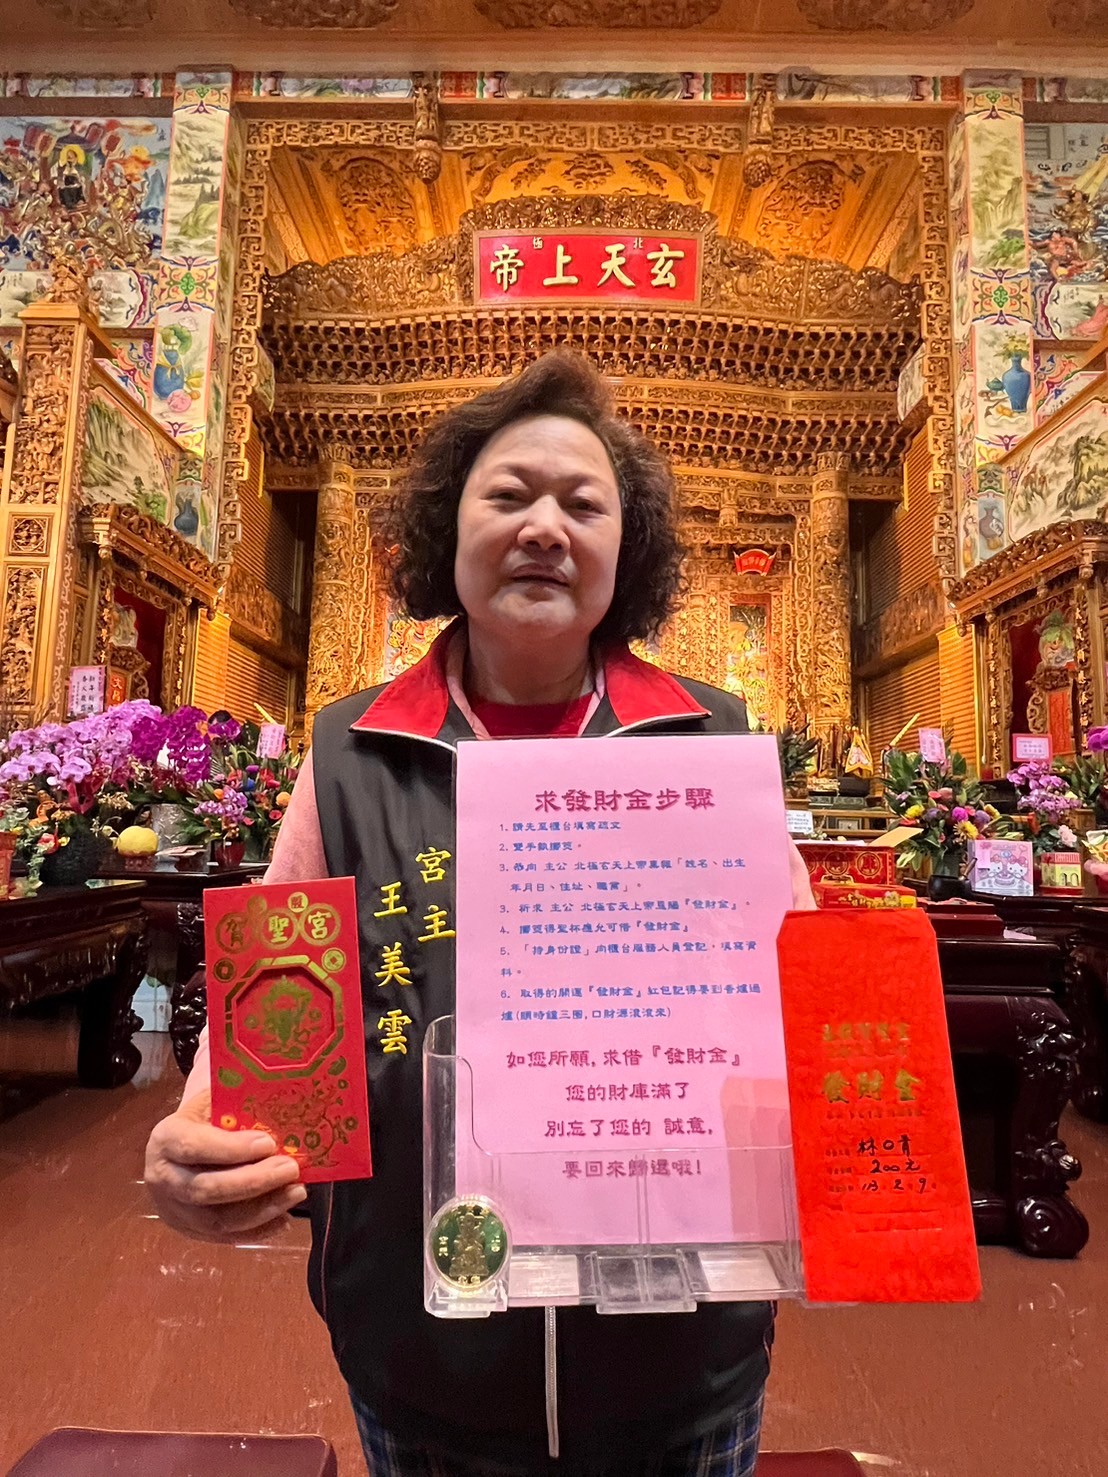 北極
玄天上帝
求發財金步驟
1. 請先至櫃台填寫疏文
2. 雙手執筊。
3. 恭向 主公 北極玄天上帝稟報「姓名、出生
年月日、住址、職業」。
3. 祈求 主公 北極玄天上帝恩賜『發財金』。
4. 擲筊得聖杯應允可借『發財金』
5. 「持身份證」向櫃台服務人員登記，填寫資
料。
6. 取得的開運『發財金』紅包記得要到香爐過
爐(順時鐘三圈,口財源滾滾來)
如您所願,求借『發財金』
您的財庫滿了
別忘了您的 誠意,
要回來歸還哦!
宮主
王美雲
賀聖宮
發財金
200元
113 2 9